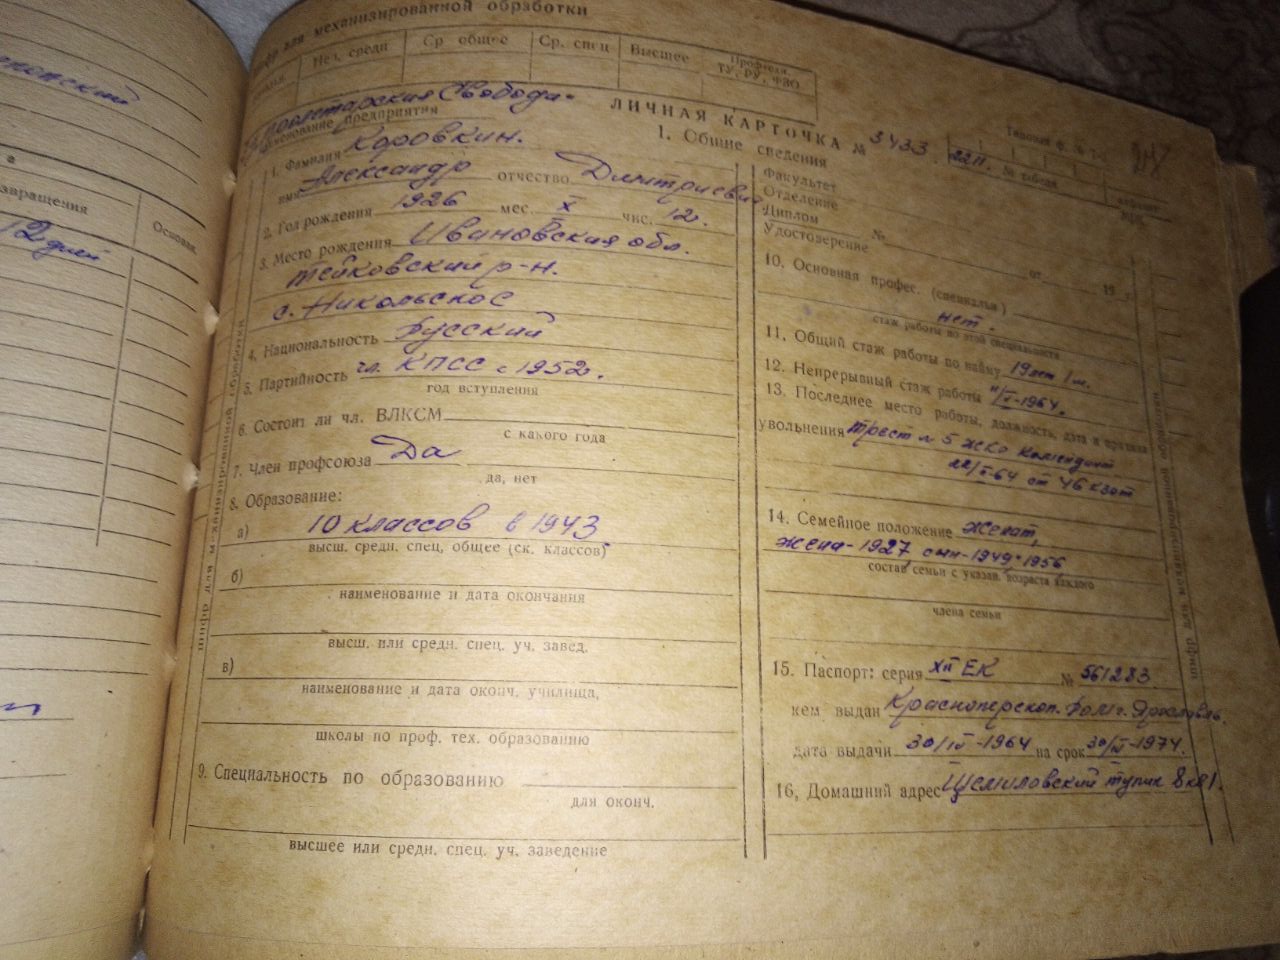 нопский
а
звращения
Основан.
12 дней
Шифр для механизированной обработки
Нез. средн
Ср общее
Ср. спец
Высшее
Профтехн.
ТУ, РУ, ФЗО
Пролетарская Свобода
наименование предприятия
ЛИЧНАЯ КАРТОЧКА № 3433.
Типовая ф. № Т-2
2211.
№ табеля
1. Общие сведения
1. Фамилия Коровкин.
имя Александр отчество Дмитриевич
2. Год рождения 1926 мес. X чис. 12.
3. Место рождения Ивановская обл.
Тейковский р-н.
с. Никольское
4. Национальность Русский
5. Партийность чл. КПСС с 1952.
год вступления
6. Состоит ли чл. ВЛКСМ
с какого года
7. Член профсоюза Да
да, нет
8. Образование:
а) 10 классов в 1943
высш. средн. спец, общее (ск. классов)
б)
наименование и дата окончания
высш. или средн. спец. уч. завед.
в)
наименование и дата оконч. училища,
школы по проф. тех. образованию
9. Специальность по образованию
для оконч.
высшее или средн. спец. уч. заведение
Факультет
Отделение
Диплом
Удостоверение №
от 19 г.
10, Основная профес. (специальн)
нет.
стаж работы по этой специальности
11, Общий стаж работы по найму 19 лет 1 м.
12. Непрерывный стаж работы 11/V-1964.
13. Последнее место работы, должность, дата и причина
увольнения Трест № 5 ЖКО комендант
22/V-64 ст 46 кзот
14. Семейное положение женат,
жена-1927, сын-1949, 1956
состав семьи с указан. возраста каждого
члена семьи
15. Паспорт: серия XII ЕК № 561283
кем выдан Красноперекоп. г. Ярославль.
дата выдачи 30/IV-1964 на срок 30/IV-1974.
16, Домашний адрес Щемиловский тупик 8 кв 1.
шифр для механизированной обработки
шифр для механизированной обработки